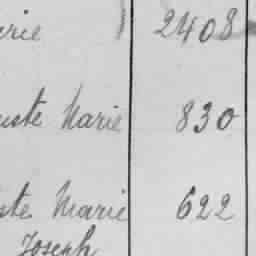 rie 2408
uste Marie 830
ste Marie 622
Joseph